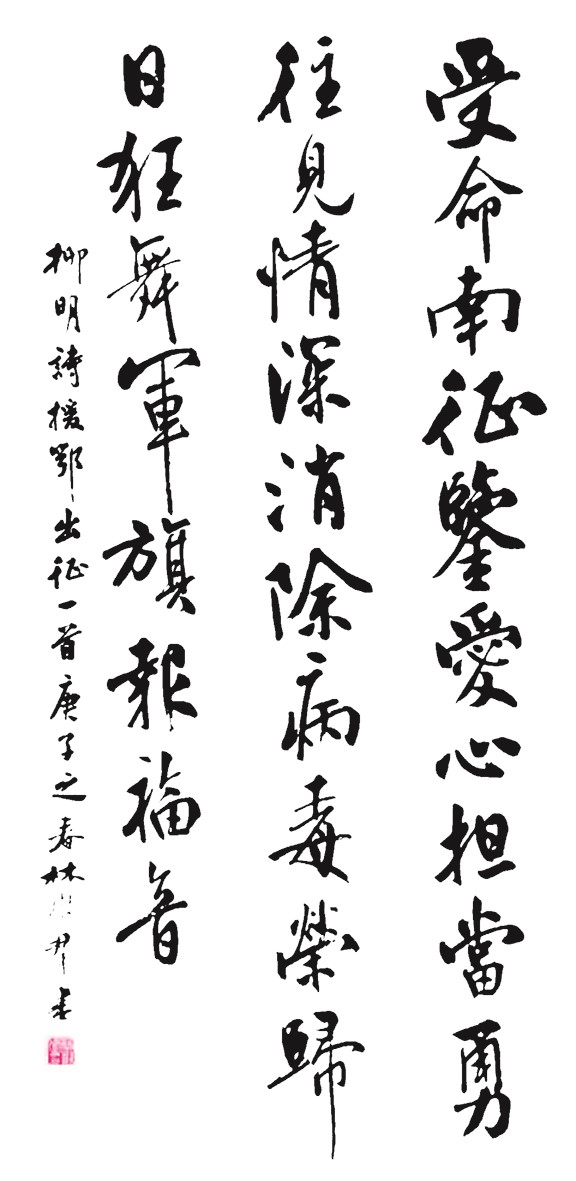 受命南征鑒愛心担當勇
往見情深消除病毒榮歸
日狂舞軍旗報福音
柳明詩援鄂出征一首庚子之春林